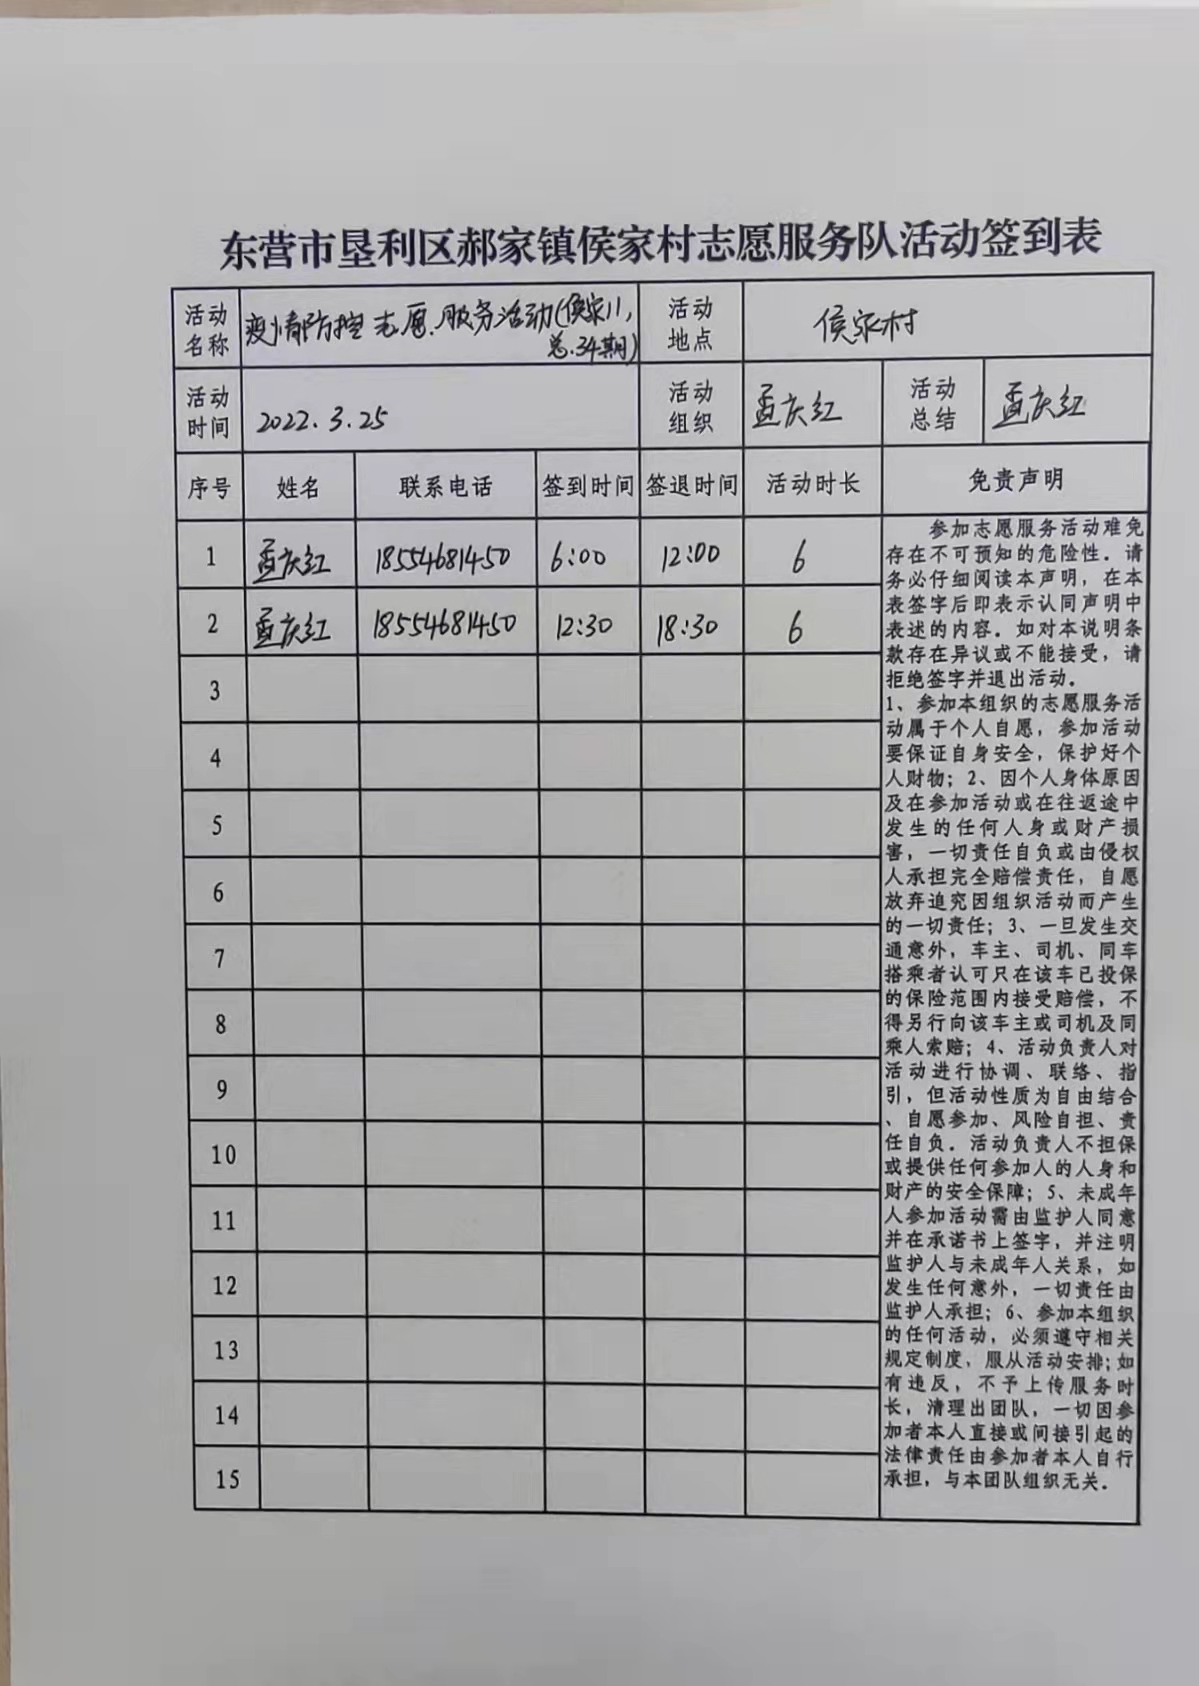 东营市垦利区郝家镇侯家村志愿服务队活动签到表
活动名称 疫情防控志愿服务活动(侯家11,总.34期) 活动地点 侯家村
活动时间 2022.3.25 活动组织 孟庆红 活动总结 孟庆红
序号 姓名 联系电话 签到时间 签退时间 活动时长 免责声明
1 孟庆红 18554681450 6:00 12:00 6
2 孟庆红 18554681450 12:30 18:30 6
3
4
5
6
7
8
9
10
11
12
13
14
15
参加志愿服务活动难免
存在不可预知的危险性．请
务必仔细阅读本声明，在本
表签字后即表示认同声明中
表述的内容．如对本说明条
款存在异议或不能接受，请
拒绝签字并退出活动．
1、参加本组织的志愿服务活
动属于个人自愿，参加活动
要保证自身安全，保护好个
人财物；2、因个人身体原因
及在参加活动或在往返途中
发生的任何人身或财产损
害，一切责任自负或由侵权
人承担完全赔偿责任，自愿
放弃追究因组织活动而产生
的一切责任；3、一旦发生交
通意外，车主、司机、同车
搭乘者认可只在该车已投保
的保险范围内接受赔偿，不
得另行向该车主或司机及同
乘人索赔；4、活动负责人对
活动进行协调、联络、指
引，但活动性质为自由结合
、自愿参加、风险自担、责
任自负．活动负责人不担保
或提供任何参加人的人身和
财产的安全保障；5、未成年
人参加活动需由监护人同意
并在承诺书上签字，并注明
监护人与未成年人关系，如
发生任何意外，一切责任由
监护人承担；6、参加本组织
的任何活动，必须遵守相关
规定制度，服从活动安排；如
有违反，不予上传服务时
长，清理出团队，一切因参
加者本人直接或间接引起的
法律责任由参加者本人自行
承担，与本团队组织无关．